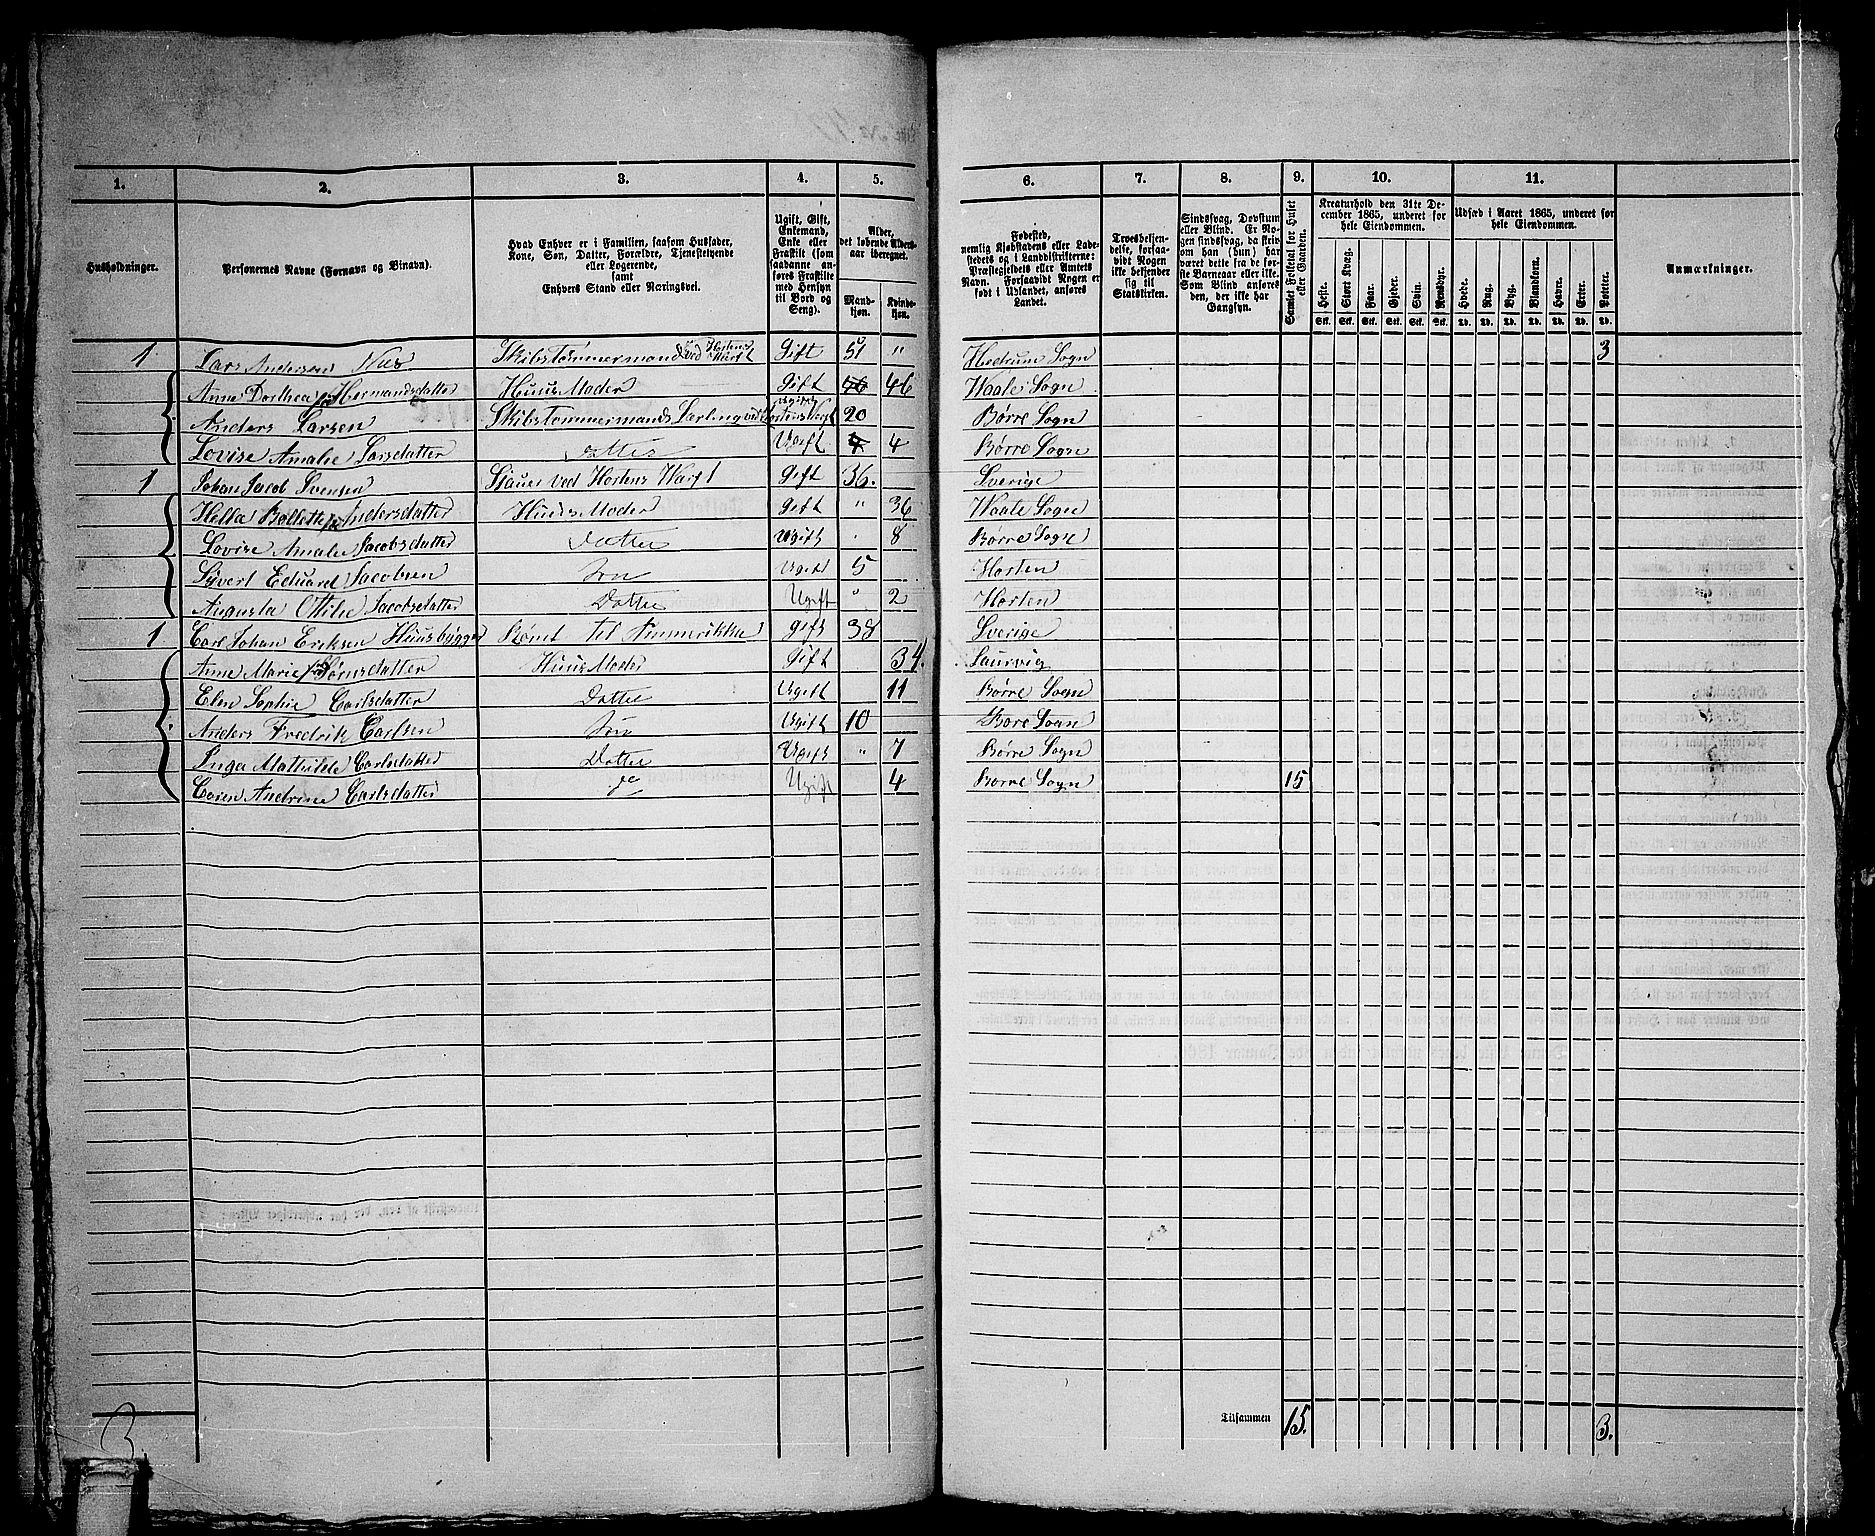 1. 2. 3. 4. 5. 6. 7. 8. 9. 10. 11.
Husholdninger.
Personernes Navne (Fornavn og Binavn).
Hvad Enhver er i Familien, saasom Husfader,
Kone, Søn, Datter, Forældre, Tjenestetyende
eller Logerende,
samt
Enhvers Stand eller Næringsvei.
Ugift, Gift,
Enkemand,
Enke eller
Fraskilt (som
saadanne an-
føres Fraskilte
med Hensyn
til Bord og
Seng).
Alder,
det løbende Alders-
aar iberegnet.
Mand-
kjøn.
Kvinde-
kjøn.
Fødested,
nemlig Kjøbstadens eller Lade-
stedets og i Landdistrikterne:
Præstegjeldets eller Amtets
Navn. Forsaavidt Nogen er
født i Udlandet, anføres
Landet.
Troesbekjen-
delse, forsaa-
vidt Nogen
ikke bekjender
sig til
Statskirken.
Sindssvag, Døvstum
eller Blind. Er No-
gen sindssvag, da skriv
om han (hun) har
været dette fra de før-
ste Barneaar eller ikke.
Som Blind anføres
den, der ikke har
Gangsyn.
Samlet Folketal for Huset
eller Gaarden.
Kreaturhold den 31te De-
cember 1865, underet for
hele Eiendommen.
Heste. Stort Kvæg. Faar. Gjeder. Svin. Rensdyr.
Stk. Stk. Stk. Stk. Stk. Stk.
Udsæd i Aaret 1865, underet for
hele Eiendommen.
Hvede. Rug. Byg. Blandkorn. Havre. Erter. Poteter.
Td. Td. Td. Td. Td. Td. Td.
Anmærkninger.
1 Lars Andersen Skibstømmermand ved Hortens Værft Gift 51 " Hedrum Sogn 3
Anne Dorthea Hermandsdatter Huus Moder Gift 46 46 Waale Sogn
Anders Larsen Skibstømmermands Lærling ved Hortens Verft Ugift 20 Børre Sogn
Lovise Amalie Larsdatter Datter Ugift 4 4 Børre Sogn
1 Johan Jacob Svensen Sjauer ved Hortens Værft Gift 36. Sverige
Hella Bollette Andersdatter Huus Moder Gift " 36 Waale Sogn
Lovise Amalie Jacobsdatter Datter Ugift . 8 Børre Sogn
Syvert Eduard Jacobsen Søn Ugift 5 Horten
Augusta Ottilie Jacobsdatter Datter Ugift " 2 Horten
1 Carl Johan Eriksen Huusbygger Rømt til Ammerikka Gift 38 Sverige
Anne Marie Sørnsdatter Huus Moder Gift 34. Laurvig
Elen Sophie Carlsdatter Datter Ugift 11 Børre Sogn
Anders Fredrik Carlsen Søn Ugift 10 Børe Sogn
Inga Mathilde Carlsdatter Datter Ugift " 7 Børre Sogn
Caren Andrine Carlsdatter Ugift 4 Børre Sogn 15
Tilsammen 15. 3.
3.